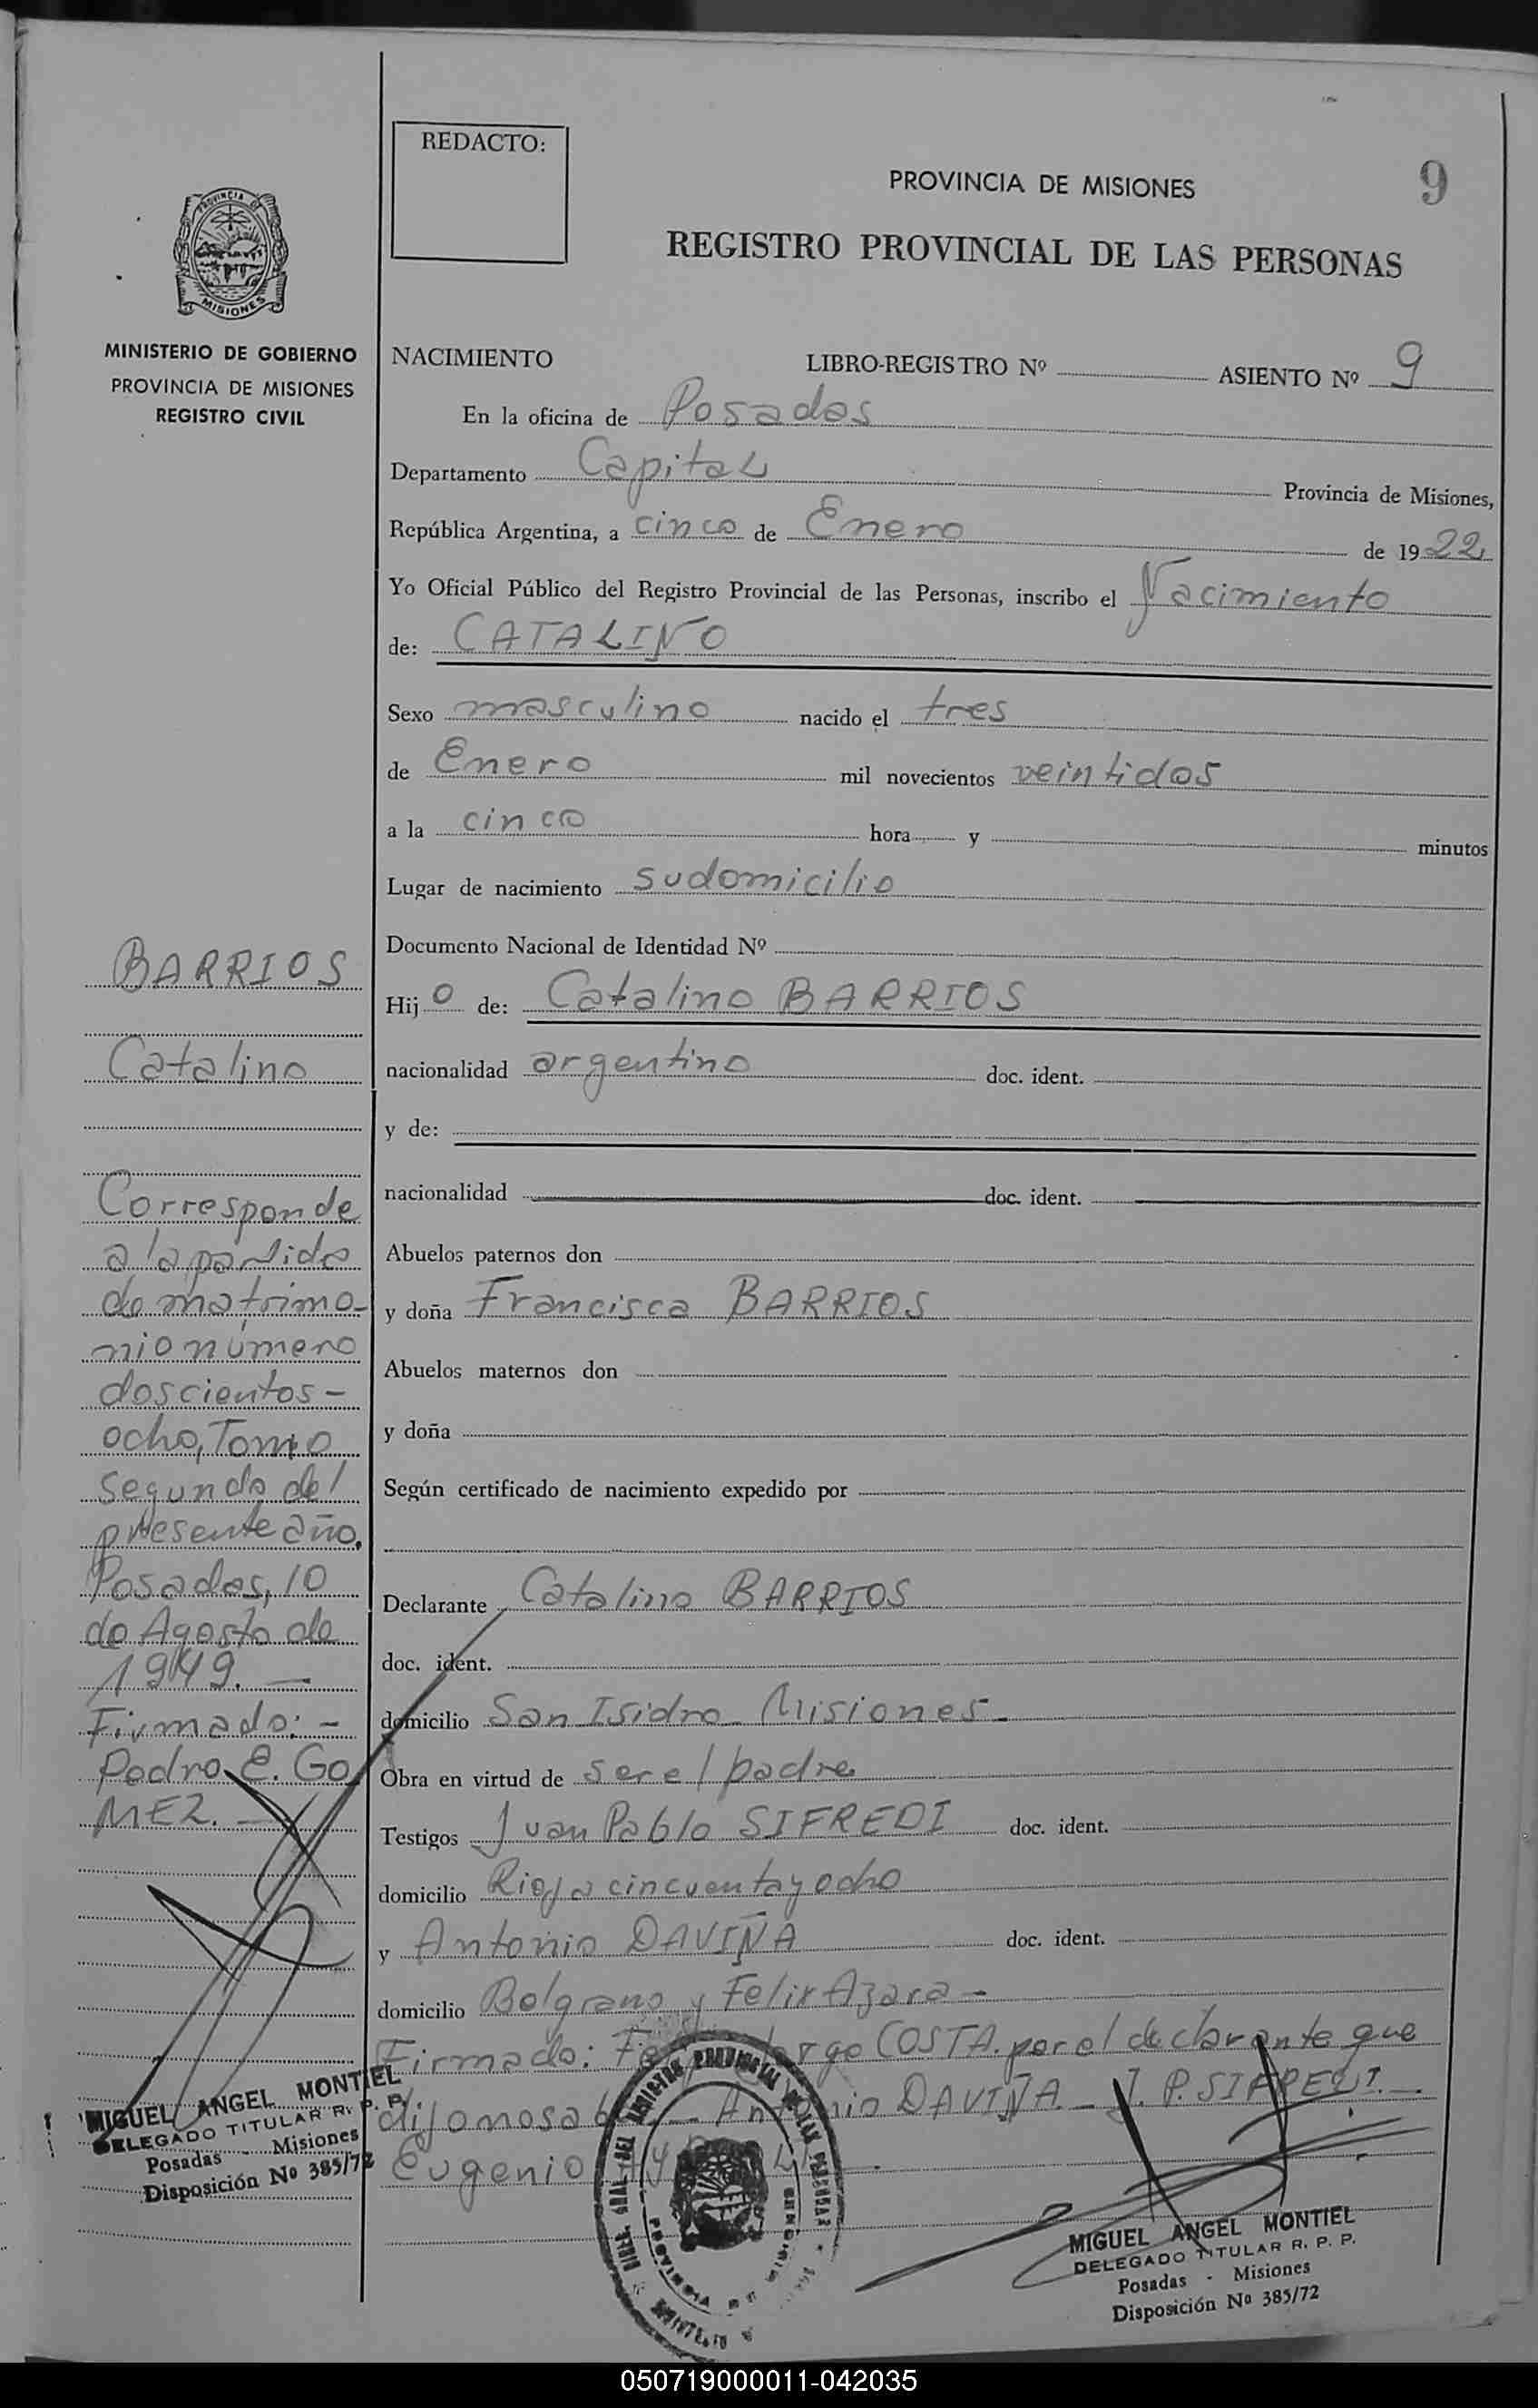 REDACTO:
PROVINCIA DE MISIONES
9
REGISTRO PROVINCIAL DE LAS PERSONAS
PROVINCIA DE
MISIONES
MINISTERIO DE GOBIERNO
PROVINCIA DE MISIONES
REGISTRO CIVIL
NACIMIENTO LIBRO-REGISTRO Nº ASIENTO Nº 9
En la oficina de Posadas
Departamento Capital Provincia de Misiones,
República Argentina, a cinco de Enero de 1922
Yo Oficial Público del Registro Provincial de las Personas, inscribo el Nacimiento
de: CATALINO
Sexo masculino nacido el tres
de Enero mil novecientos veintidos
a la cinco hora y minutos
Lugar de nacimiento sudomicilio
Documento Nacional de Identidad Nº
Hijo de: Catalino BARRIOS
nacionalidad argentino doc. ident.
y de:
nacionalidad doc. ident.
Abuelos paternos don
y doña Francisca BARRIOS
Abuelos maternos don
y doña
Según certificado de nacimiento expedido por
Declarante Catalino BARRIOS
doc. ident.
domicilio San Isidro Misiones.
Obra en virtud de ser el padre
Testigos Juan Pablo SIFREDI doc. ident.
domicilio Rioja cincuenta y ocho
y Antonio DAVIÑA doc. ident.
domicilio Belgrano y Felix Azara -
Firmado: COSTA. por el declarante que
dijo no sab Antonio DAVIÑA - J. P. SIFREDI. -
Eugenio
BARRIOS
Catalino
Corresponde
a la partida
de matrimo-
nio número
doscientos -
ocho, Tomo
segundo del
presente año.
Posadas, 10
de Agosto de
1949. -
Firmado: -
Pedro E. Go
MEZ. -
MIGUEL ANGEL MONTIEL
DELEGADO TITULAR R. P. P.
Posadas - Misiones
Disposición Nº 385/72
MIGUEL ANGEL MONTIEL
DELEGADO TITULAR R. P. P.
Posadas - Misiones
Disposición Nº 385/72
050719000011-042035